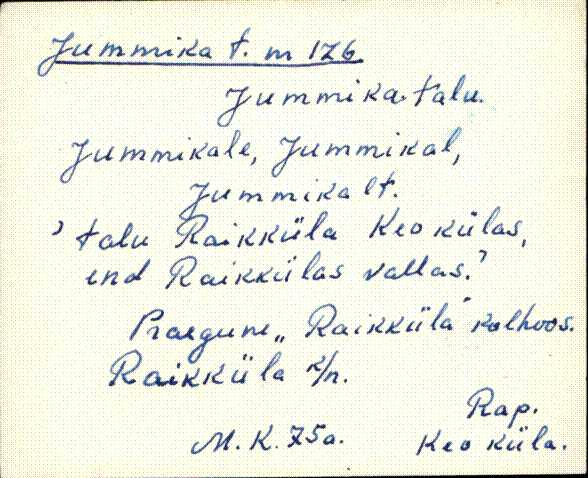 Jummika t. m 126
Jummika talu.
Jummikale, Jummikal,
Jummikalt.
’talu Raikküla Keo külas,
end Raikkülas vallas.’
Praegune „Raikküla“ kolhoos.
Raikküla k/n.
Rap.
M. K. 75a. Keo küla.